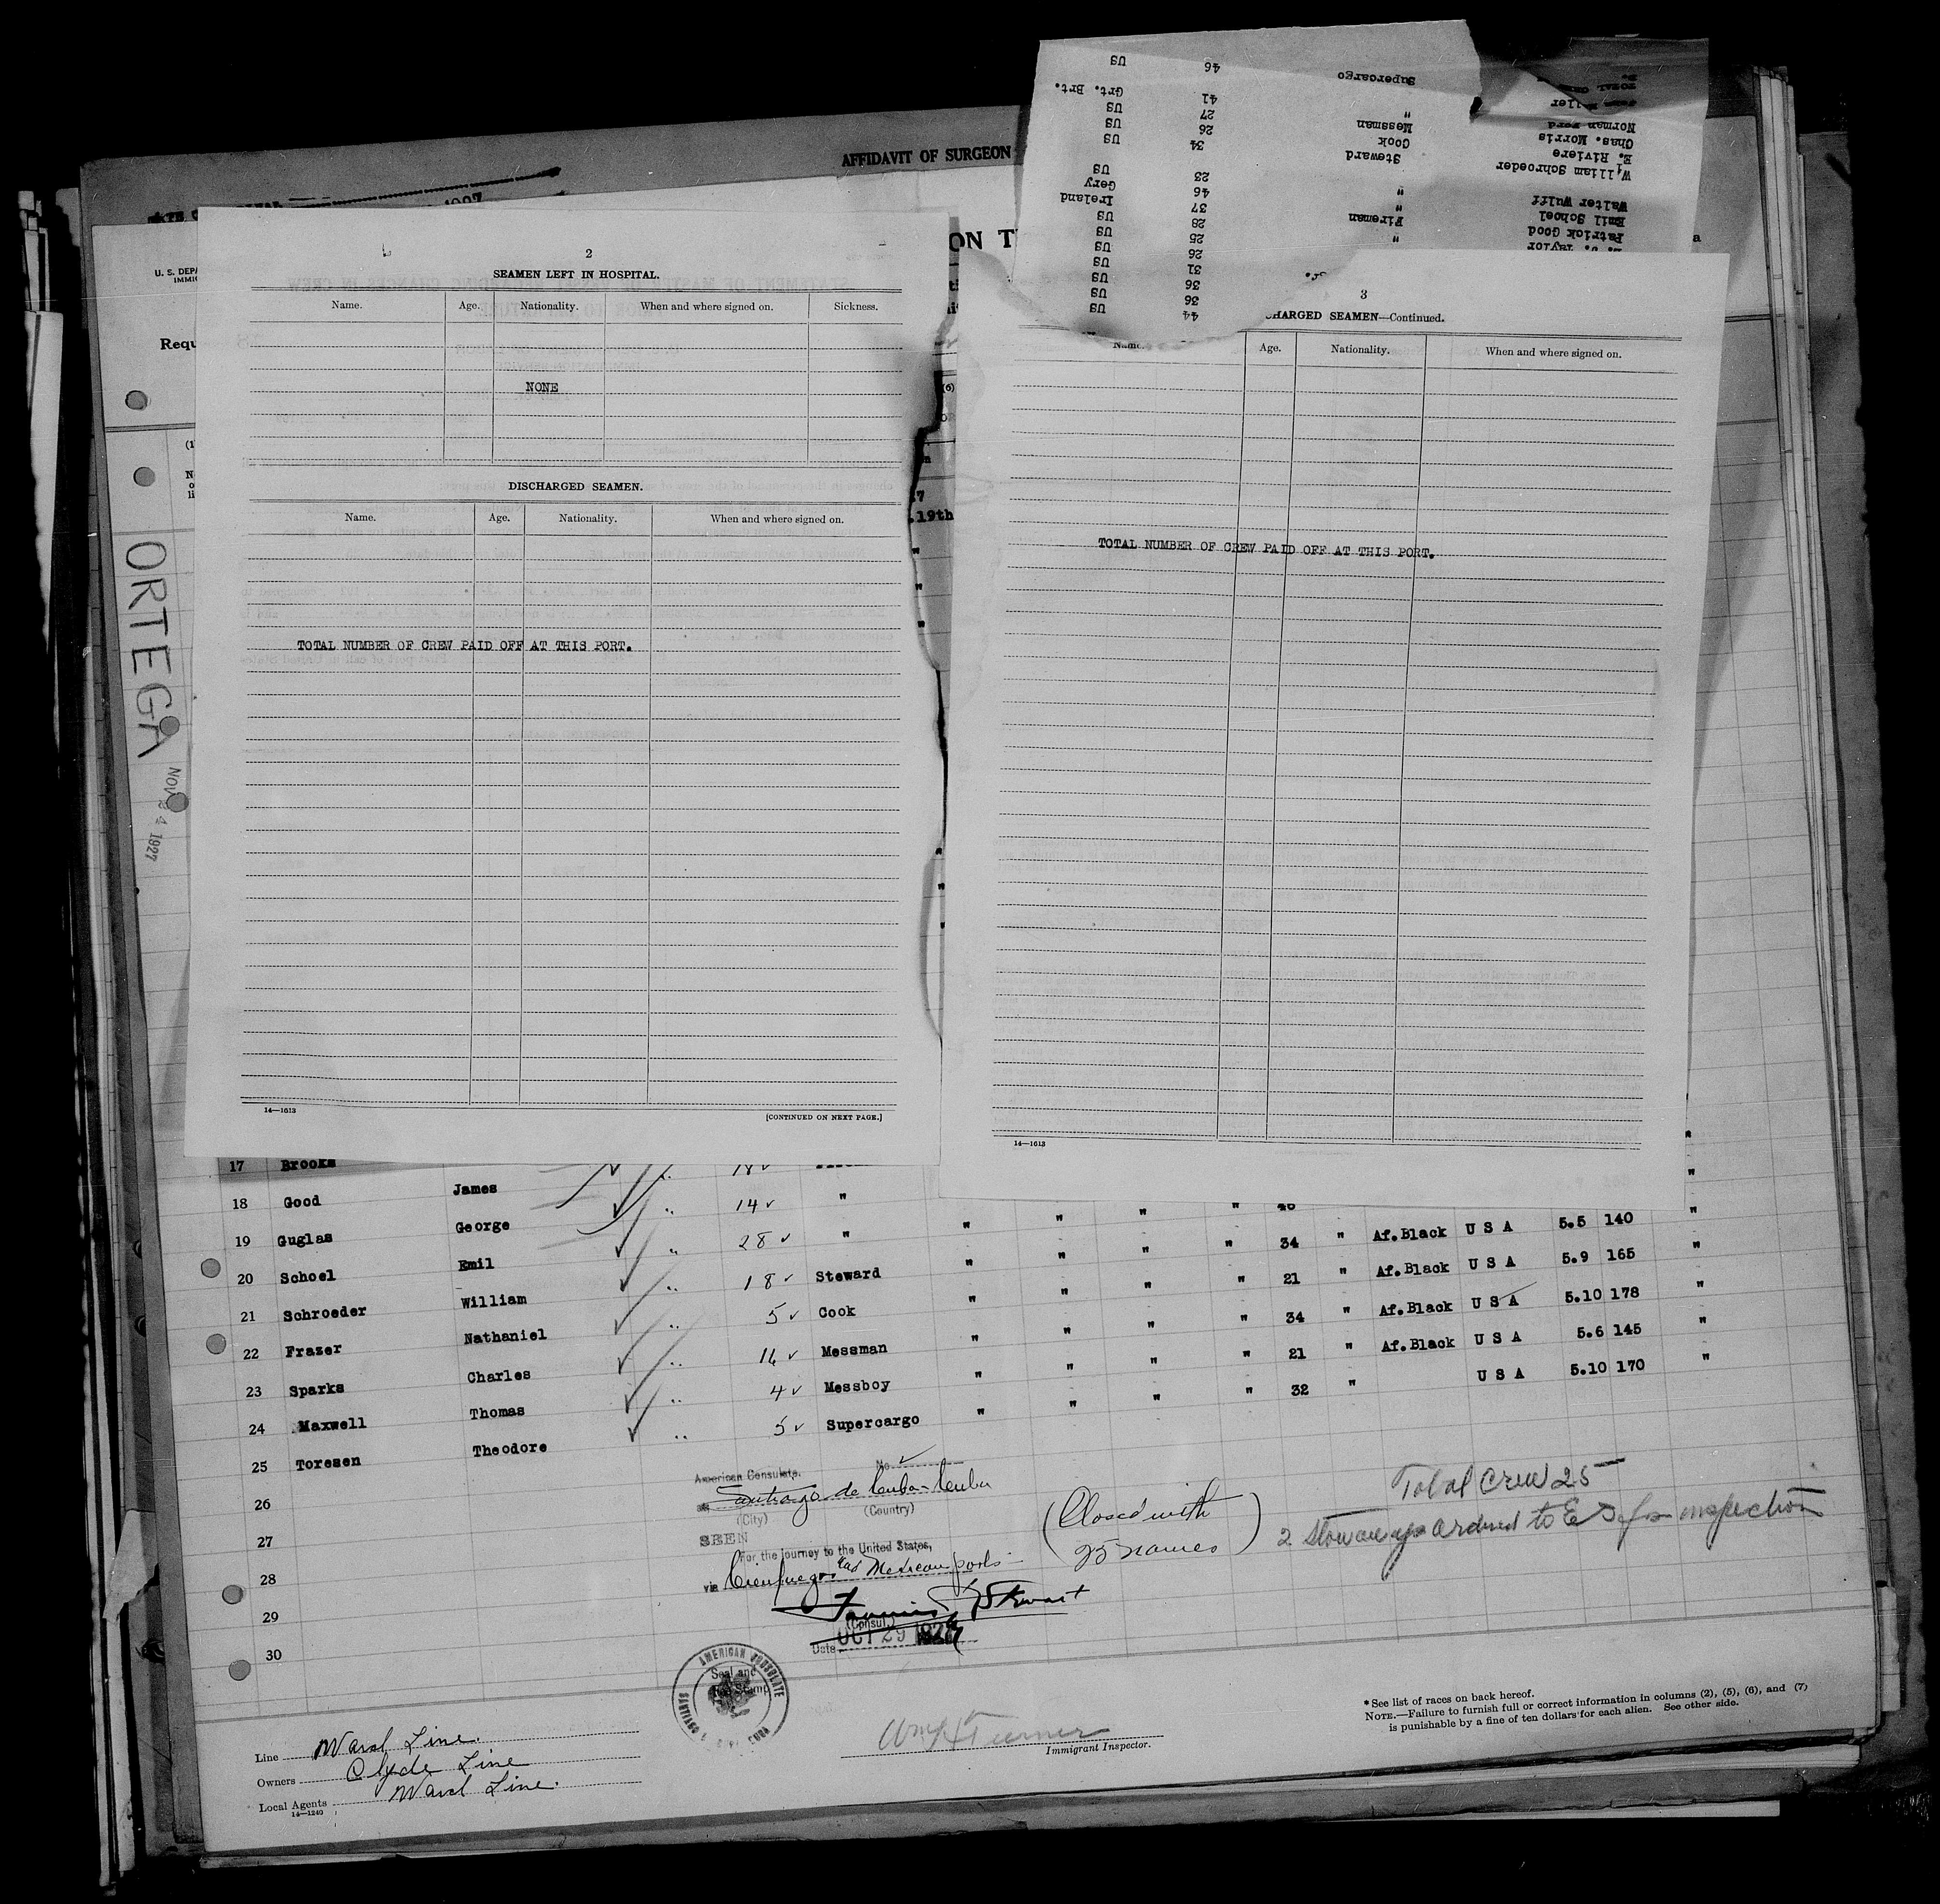 AFFIDAVIT OF SURGEON
U. S. DEPA
IMMI
Requ
ORTEGA
NOV 24 1927
2
SEAMEN LEFT IN HOSPITAL.
Name. Age. Nationality. When and where signed on. Sickness.
NONE
DISCHARGED SEAMEN.
Name. Age. Nationality. When and where signed on.
TOTAL NUMBER OF CREW PAID OFF AT THIS PORT.
14—1613 [CONTINUED ON NEXT PAGE.]
ON T
(6)
17
.19th
Supercargo 46 US
41 Grt. Brt.
" 27 US
Norman Ford Messman 26 US
Chas. Morris Cook 34 US
E. Riviere Steward
William Schroeder 23 US
" 46 Gery
Walter Wulff " 37 Ireland
Emil Schoel Fireman 28 US
Patrick Good " 25 US
26 US
31 US
36 US
36 US
44 US
3
CHARGED SEAMEN—Continued.
Name. Age. Nationality. When and where signed on.
TOTAL NUMBER OF CREW PAID OFF AT THIS PORT.
14—1613
17 Brooks James
18 Good George 14 "
19 Guglas Emil 28 " " " " " 34 " Af. Black U S A 5.5 140 "
20 Schoel William 18 Steward " " " " 21 " Af. Black U S A 5.9 165 "
21 Schroeder Nathaniel 5 Cook " " " " 34 " Af. Black U S A 5.10 178 "
22 Frazer Charles 14 Messman " " " " 21 " Af. Black U S A 5.6 145 "
23 Sparks Thomas 4 Messboy " " " " 32 " U S A 5.10 170 "
24 Maxwell Theodore 5 Supercargo "
25 Toresen
26
27
28
29
30
American Consulate. No.
at Santiago de Cuba - Cuba
(City) (Country)
SEEN
For the journey to the United States,
via Cienfuegos and Mexican ports
Stewart
(Consul.)
Date OCT 29 1927
Seal and
Fee Stamp
AMERICAN CONSULATE
SANTIAGO DE CUBA
(Closed with
25 names)
Total Crew 25
2 Stowaways ordered to E I for inspection
Line Ward Line.
Owners Clyde Line
Local Agents Ward Line.
14—1240
Wm H Turner
Immigrant Inspector.
* See list of races on back hereof.
NOTE.—Failure to furnish full or correct information in columns (2), (5), (6), and (7)
is punishable by a fine of ten dollars for each alien. See other side.